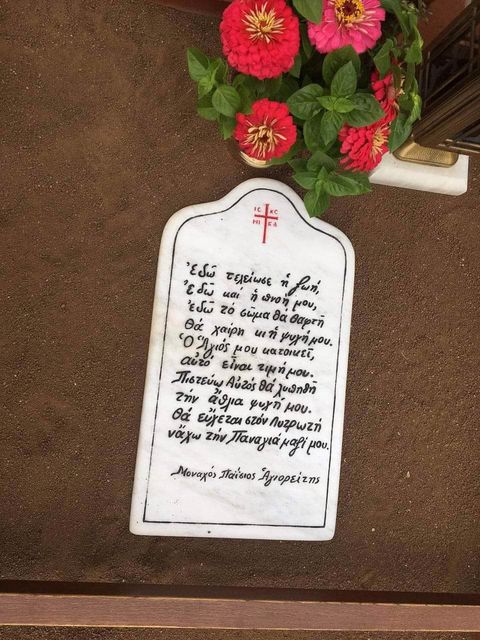 IC XC
ΝΙ ΚΑ
Ἐδῶ τελείωσε ἡ ζωή,
Ἐδῶ καί ἡ πνοή μου,
ἐδῶ τό σῶμα θά θαφτῆ
Θά χαίρη κι ἡ ψυχή μου.
Ὁ Ἅγιός μου κατοικεῖ,
αὐτό εἶναι τιμή μου.
Πιστεύω Αὐτός θά λυπηθῆ
τήν ἄθλια ψυχή μου.
Θά εὔχεται στόν Λυτρωτή
νἄχω τήν Παναγιά μαζί μου.
Μοναχός Παΐσιος Ἁγιορείτης